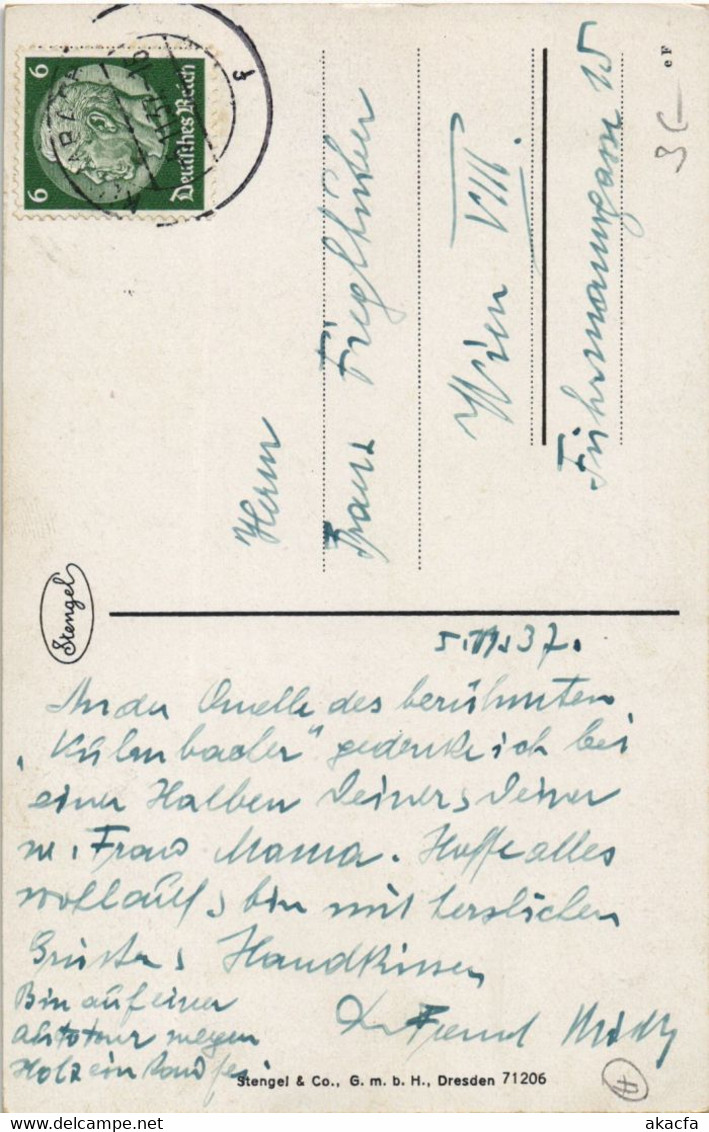 6 6
Deutsches Reich
Herrn
Franz
Wien VIII.
Fuhrmannsgasse 15
e F
Stengel
5. 37.
An der Quelle des berühmten
"Kulmbacher" gedenke ich bei
einer Halben Deiner, Deiner
w. Frau Mama. Hoffe alles
wohlauf, bin mit herzlichen
Grüssen, Handküssen
Bin auf einer
Autotour wegen
Holzeinkaufes.
Dein Freund
Stengel & Co., G. m. b. H., Dresden 71206
akacfa akacfa